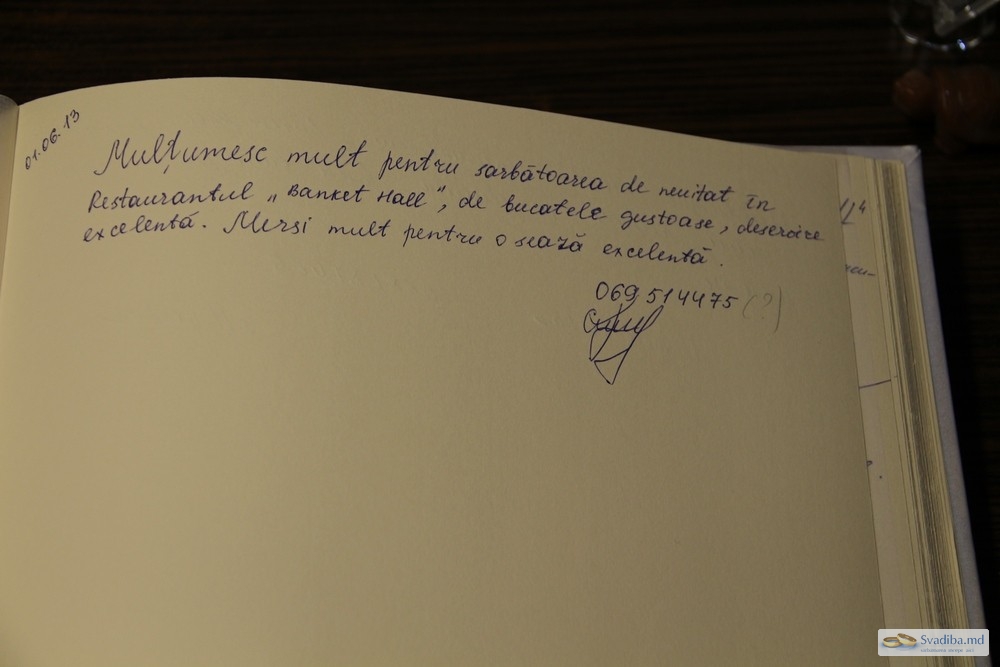 01.06.13
Mulțumesc mult pentru sarbătoarea de neuitat în
Restaurantul „Banket Hall", de bucatele gustoase, deservire
excelentă. Mersi mult pentru o sează excelentă.
069514475 (?)
Svadiba.md